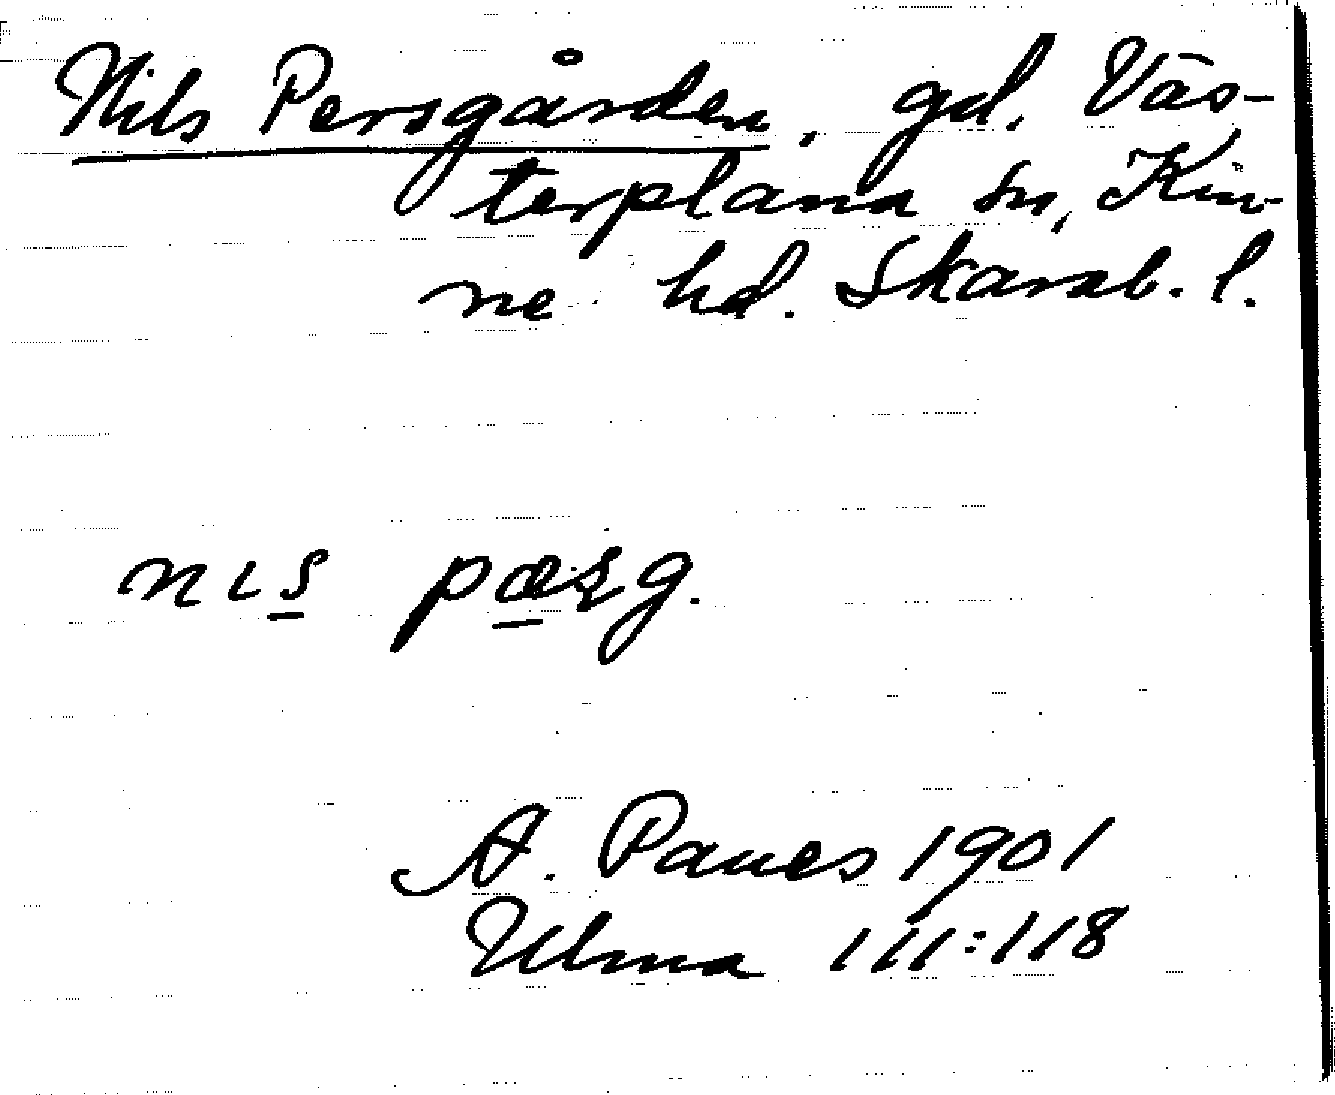 Nils Persgården, gd. Väs-
terplana sn, Kin-
ne hd. Skarab. l.
nɩs pæʂg.
A. Paues 1901
Ulma 111:118